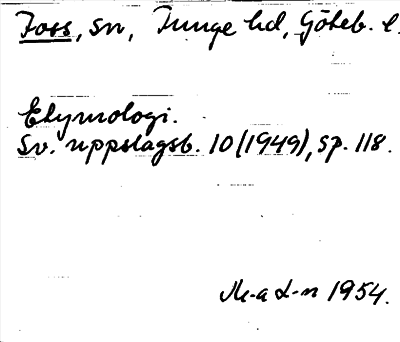 Foss, sn, Tunge hd, Göteb. l.
Etymologi.
Sv. uppslagsb. 10 (1949), sp. 118.
M-a L-n 1954.